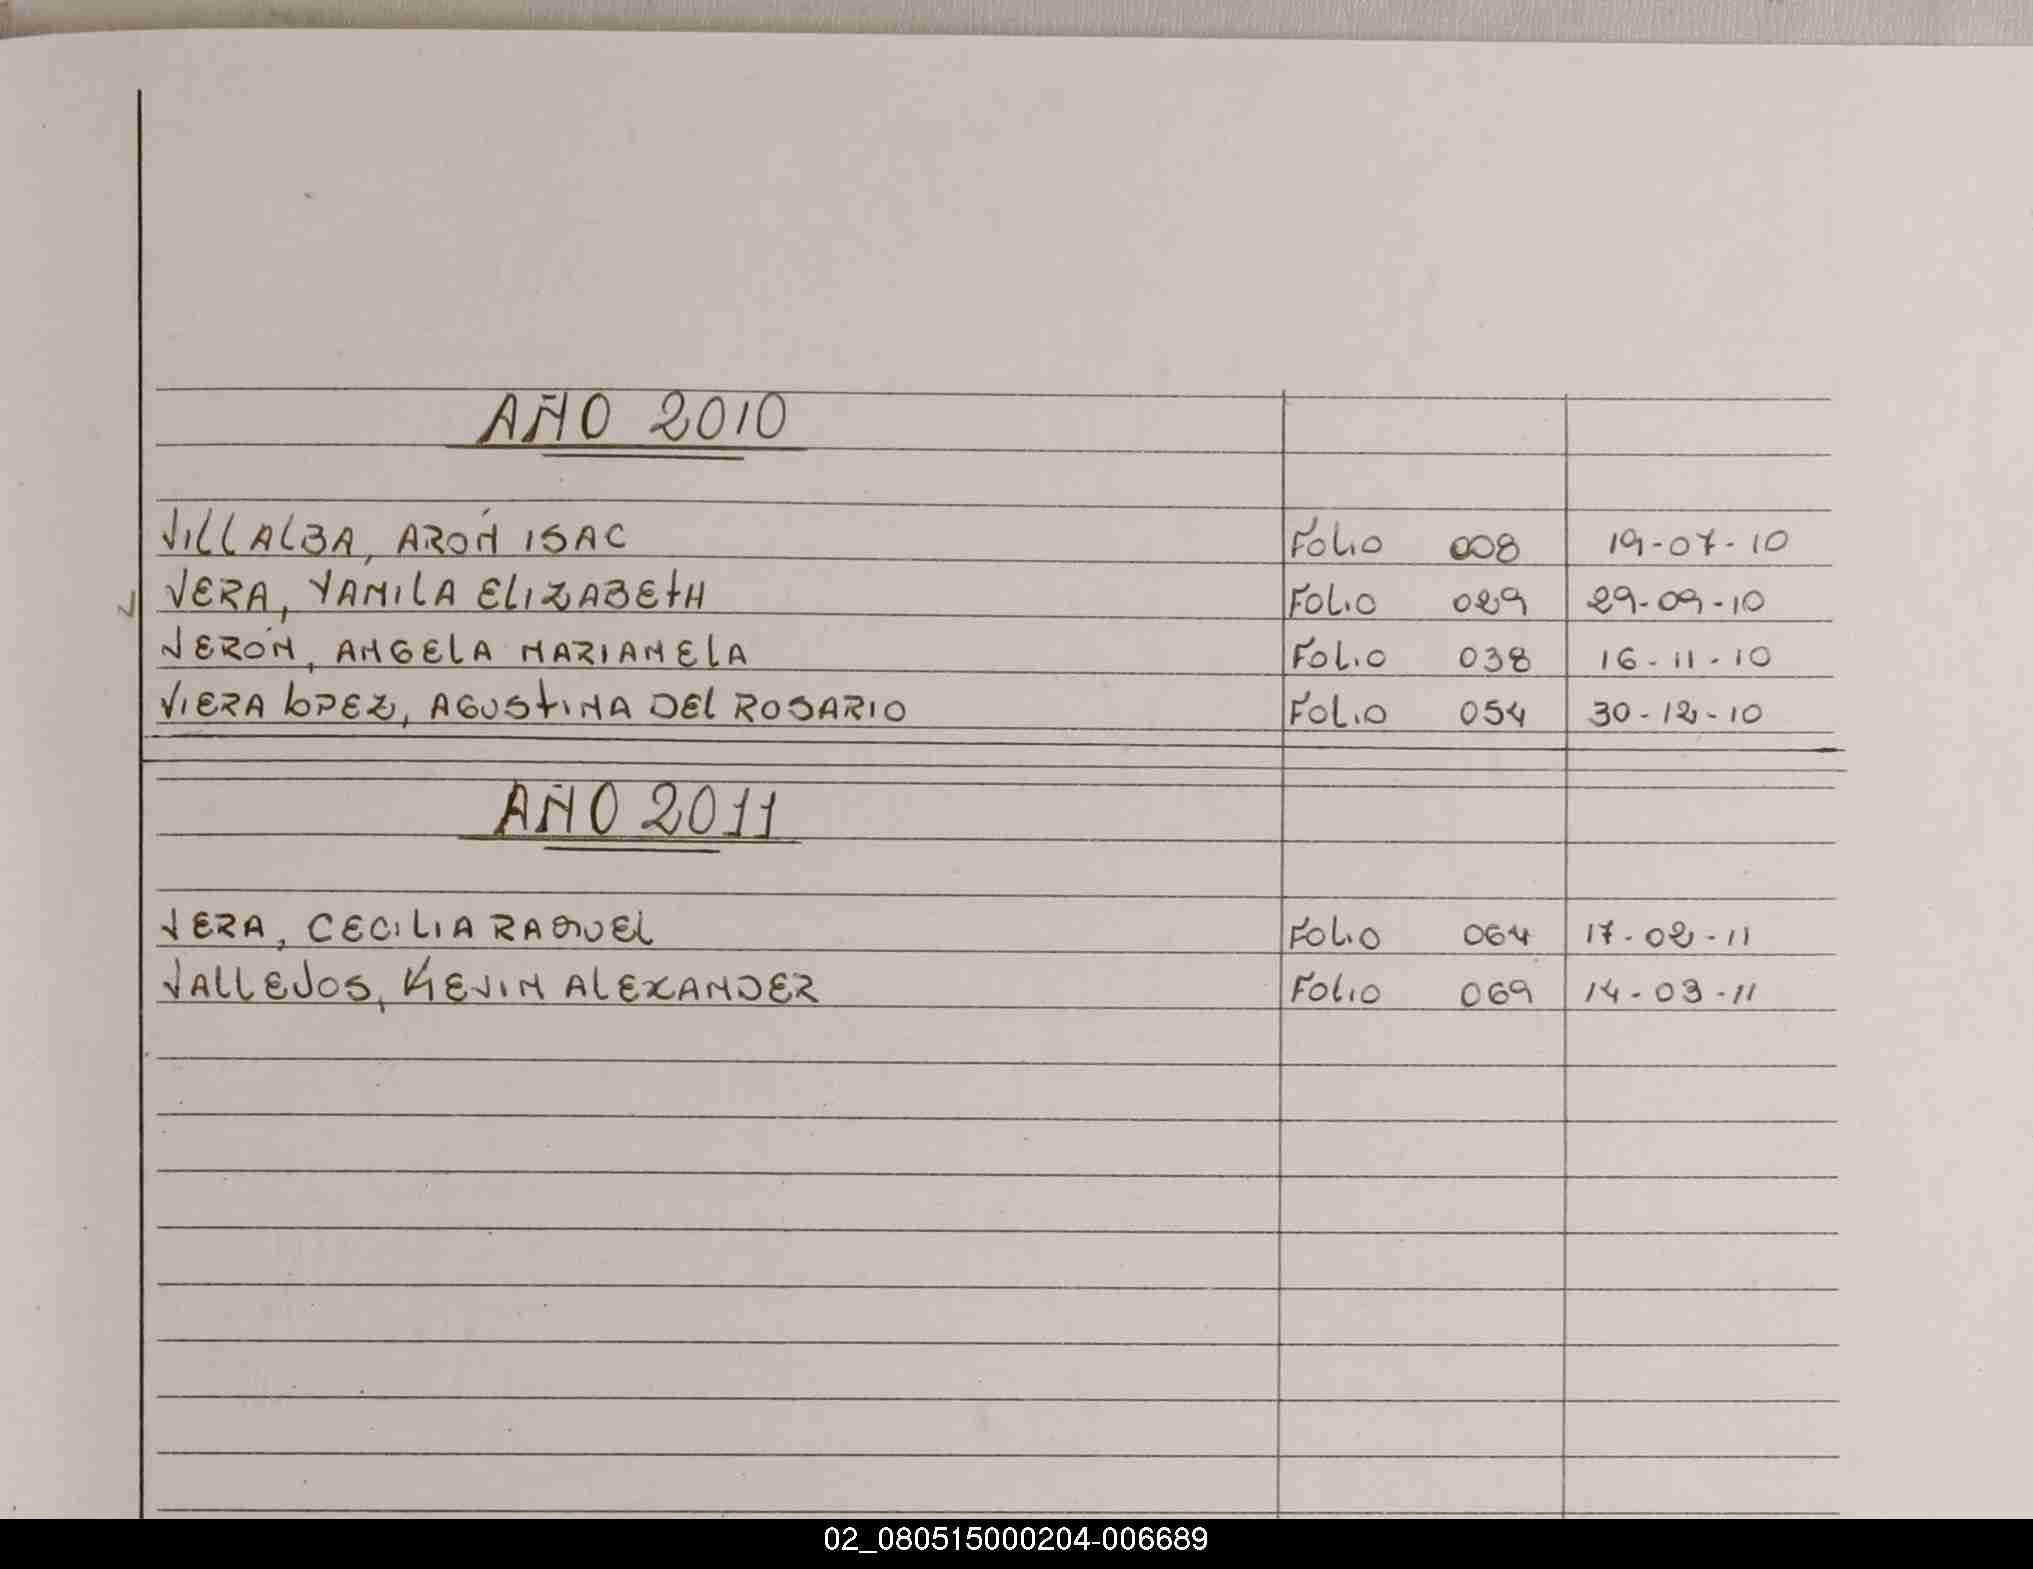 AÑO 2010
VILLALBA, ARÓN ISAC FOLIO 008 19-07-10
VERA, YAMILA ELIZABETH FOLIO 029 29-09-10
VERÓN, ANGELA MARIANELA FOLIO 038 16-11-10
VIERA LOPEZ, AGUSTINA DEL ROSARIO FOLIO 054 30-12-10
AÑO 2011
VERA, CECILIA RAQUEL FOLIO 064 17-02-11
VALLEJOS, KEVIN ALEXANDER FOLIO 069 14-03-11
02_080515000204-006689